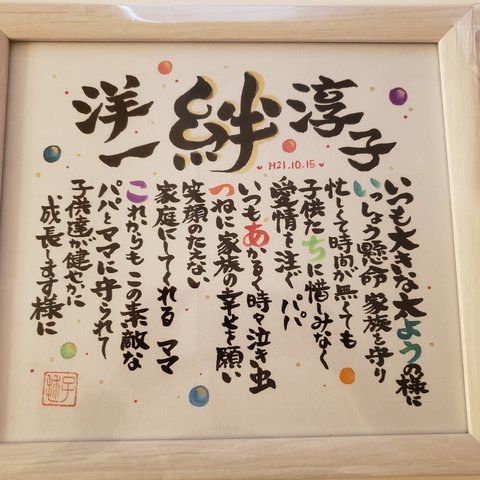 洋一
絆
淳子
H21.10.15
いつも大きな太ようの様に
いっしょう懸命 家族を守り
忙しくて時間が無くても
子供たちに惜しみなく
愛情を注ぐ パパ
いつもあかるく時々泣き虫
つねに家族の幸せを願い
笑顔のたえない
家庭にしてくれる ママ
これからもこの素敵な
パパとママに守られて
子供達が健やかに
成長します様に